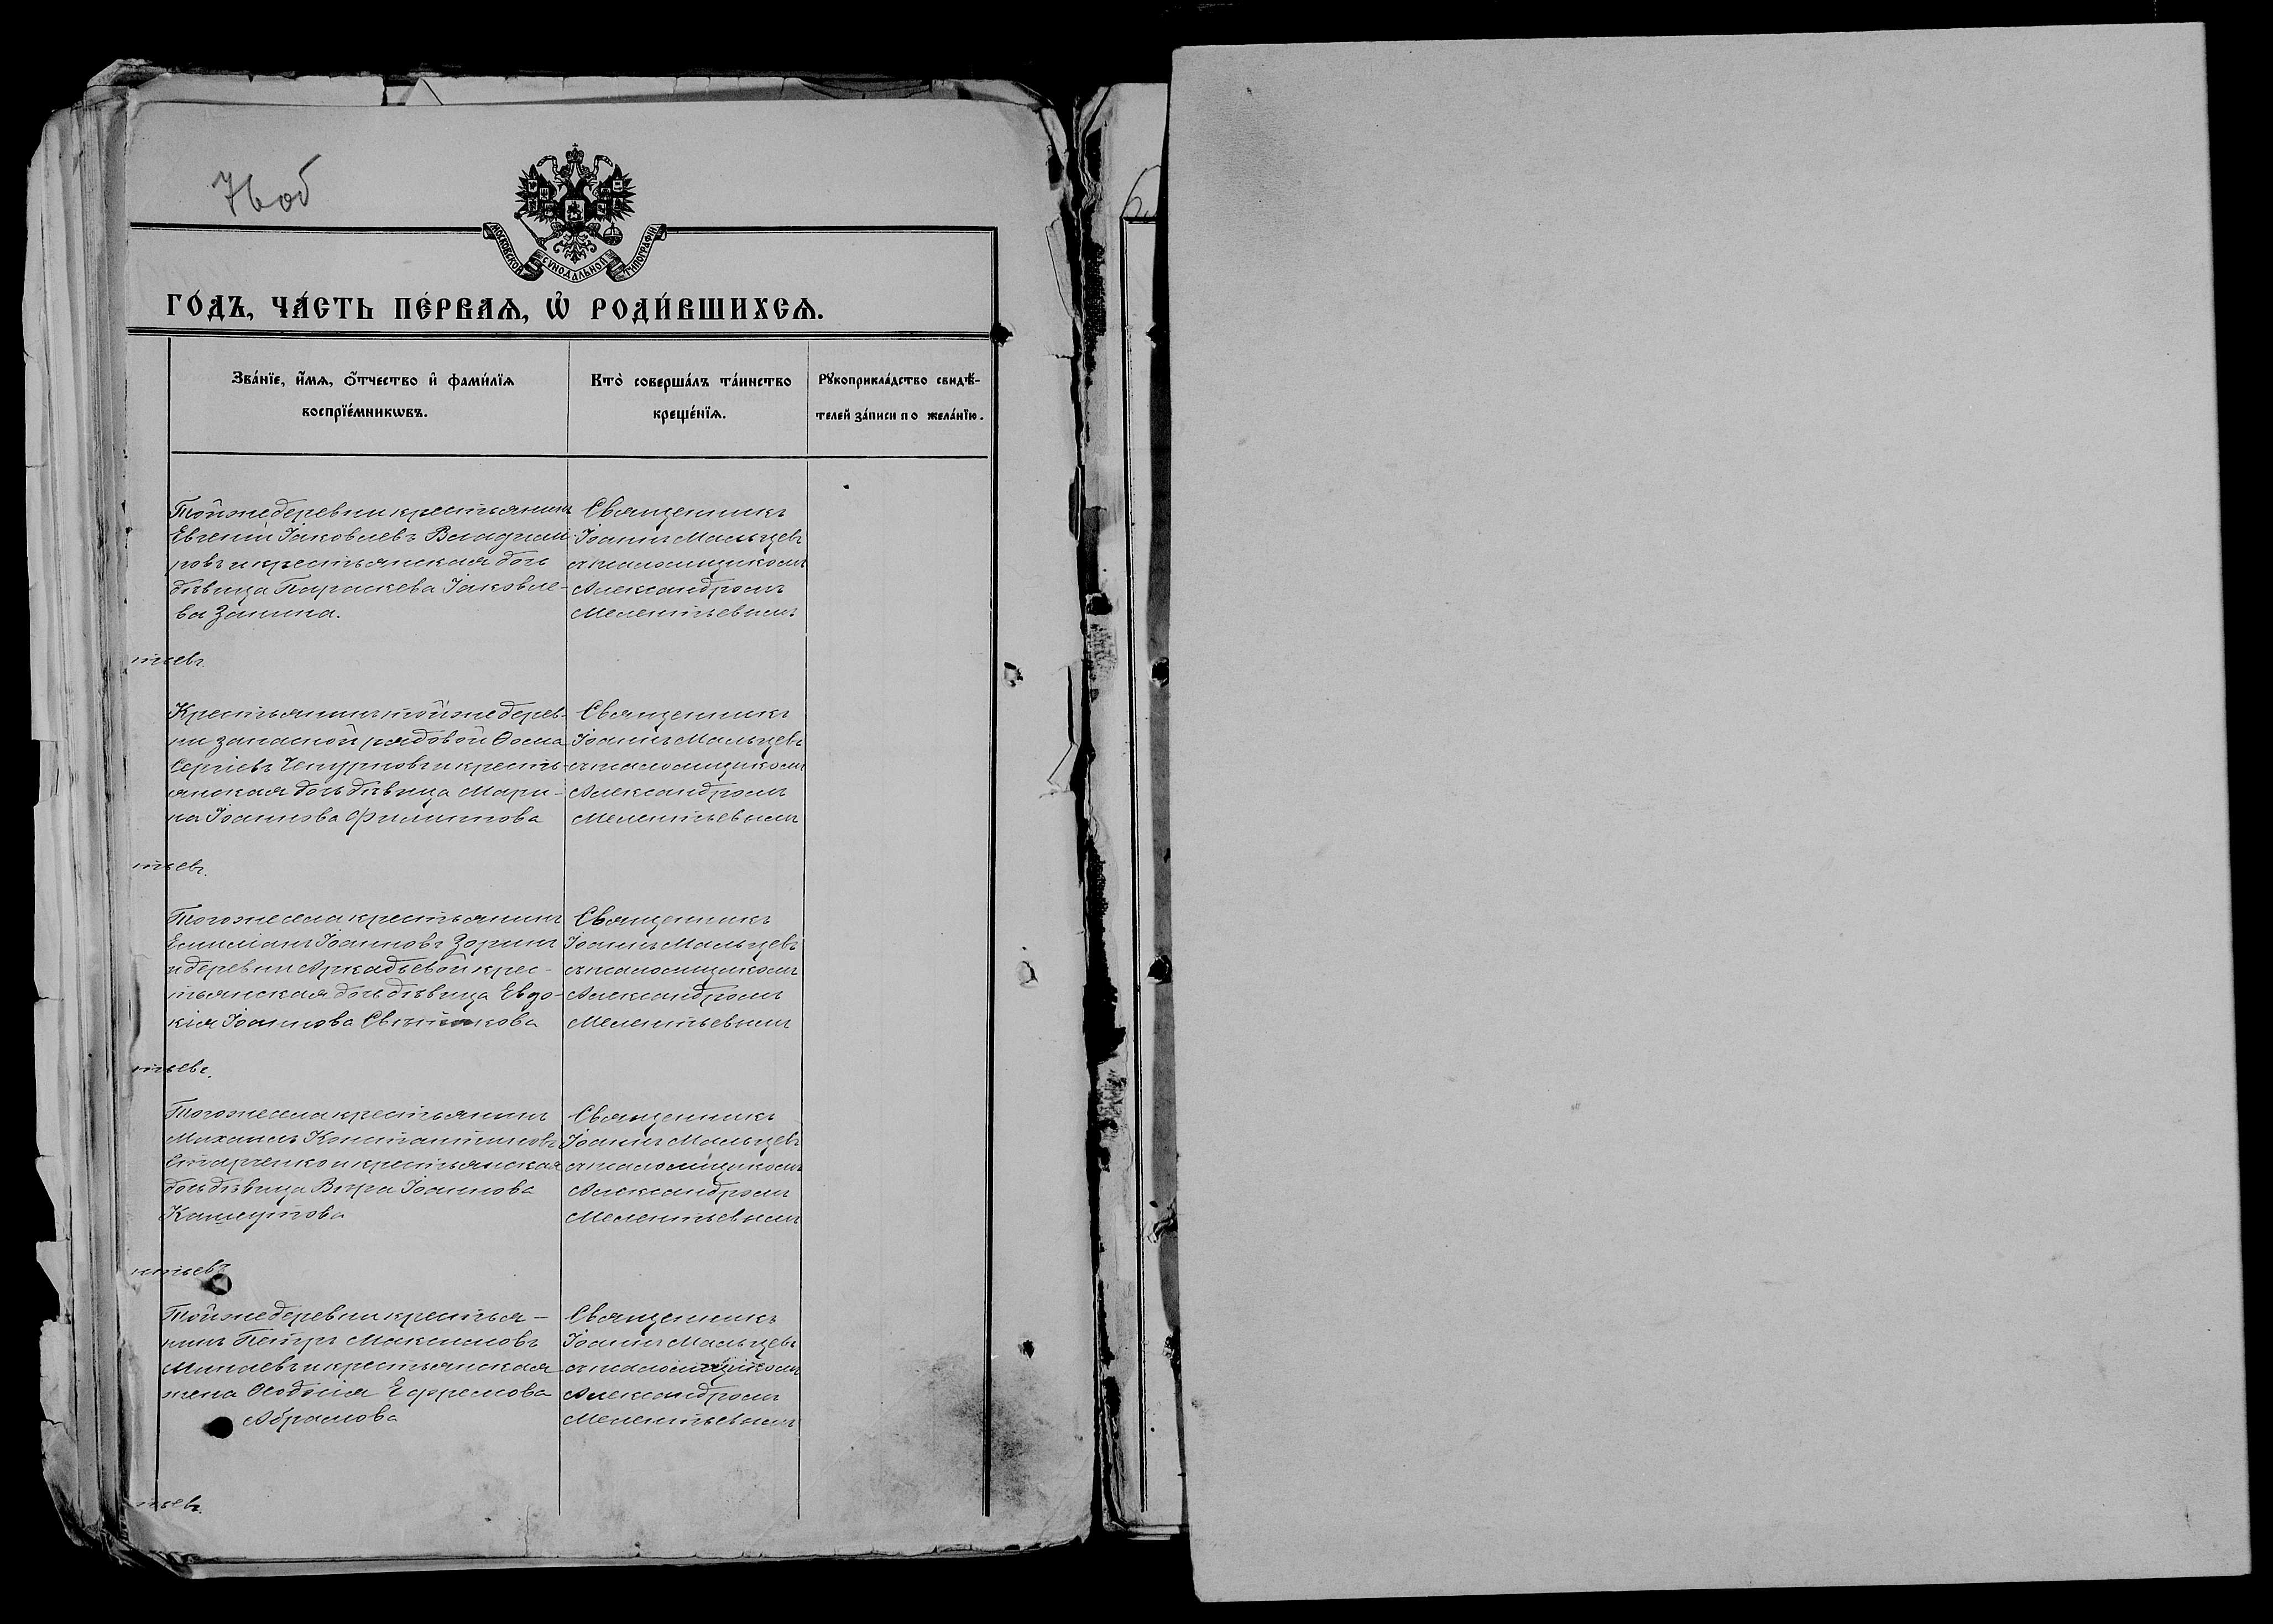 76об
МОСКОВСКОЙ СѴНОДАЛЬНОЙ ТИПОГРАФІИ
ГО́ДЪ, ЧА́СТЬ ПЕ́РВАѦ, Ѡ҆ РОДИ́ВШИХСѦ.
Зва́нїе, и҆́мѧ, ѻ҆́тчество и҆ фами́лїѧ
воспрїе́мникѡвъ.
Кто̀ соверша́лъ та́инство
креще́нїѧ.
Рꙋкоприкла́дство свидѣ́-
телей за́писи по жела́нїю.
Тойже деревни крестьянинъ
Евгеній Іаковлевъ Владими-
ровъ и крестьянская дочь
дѣвица Параскева Іаковле-
ва Занина.
Священникъ
Іоаннъ Мальцевъ
съ псаломщикомъ
Александромъ
Мелентьевымъ
нтьевъ.
Крестьянинъ тойже дерев-
ни запасной рядовой Ѳома
Сергіевъ Чепурновъ и кресть-
янская дочь дѣвица Мари-
на Іоаннова Филиппова
Священникъ
Іоаннъ Мальцевъ
съ псаломщикомъ
Александромъ
Мелентьевымъ
нтьевъ.
Тогоже села крестьянинъ
Емиліанъ Іоанновъ Зоринъ
и деревни Аркадьевой крес-
тьянская дочь дѣвица Евдо-
кія Іоаннова
Священникъ
Іоаннъ Мальцевъ
съ псаломщикомъ
Александромъ
Мелентьевымъ
нтьевъ.
Тогоже села крестьянинъ
Михаилъ Константиновъ
Старченко и крестьянская
дочь дѣвица Вѣра Іоаннова
Священникъ
Іоаннъ Мальцевъ
съ псаломщикомъ
Александромъ
Мелентьевымъ
нтьевъ
Тойже деревни крестья-
нинъ Петръ Максимовъ
Минаевъ и крестьянская
жена Ѳеодосія Ефремова
Абрамова
Священникъ
Іоаннъ Мальцевъ
съ псаломщикомъ
Александромъ
Мелентьевымъ
нтьевъ.